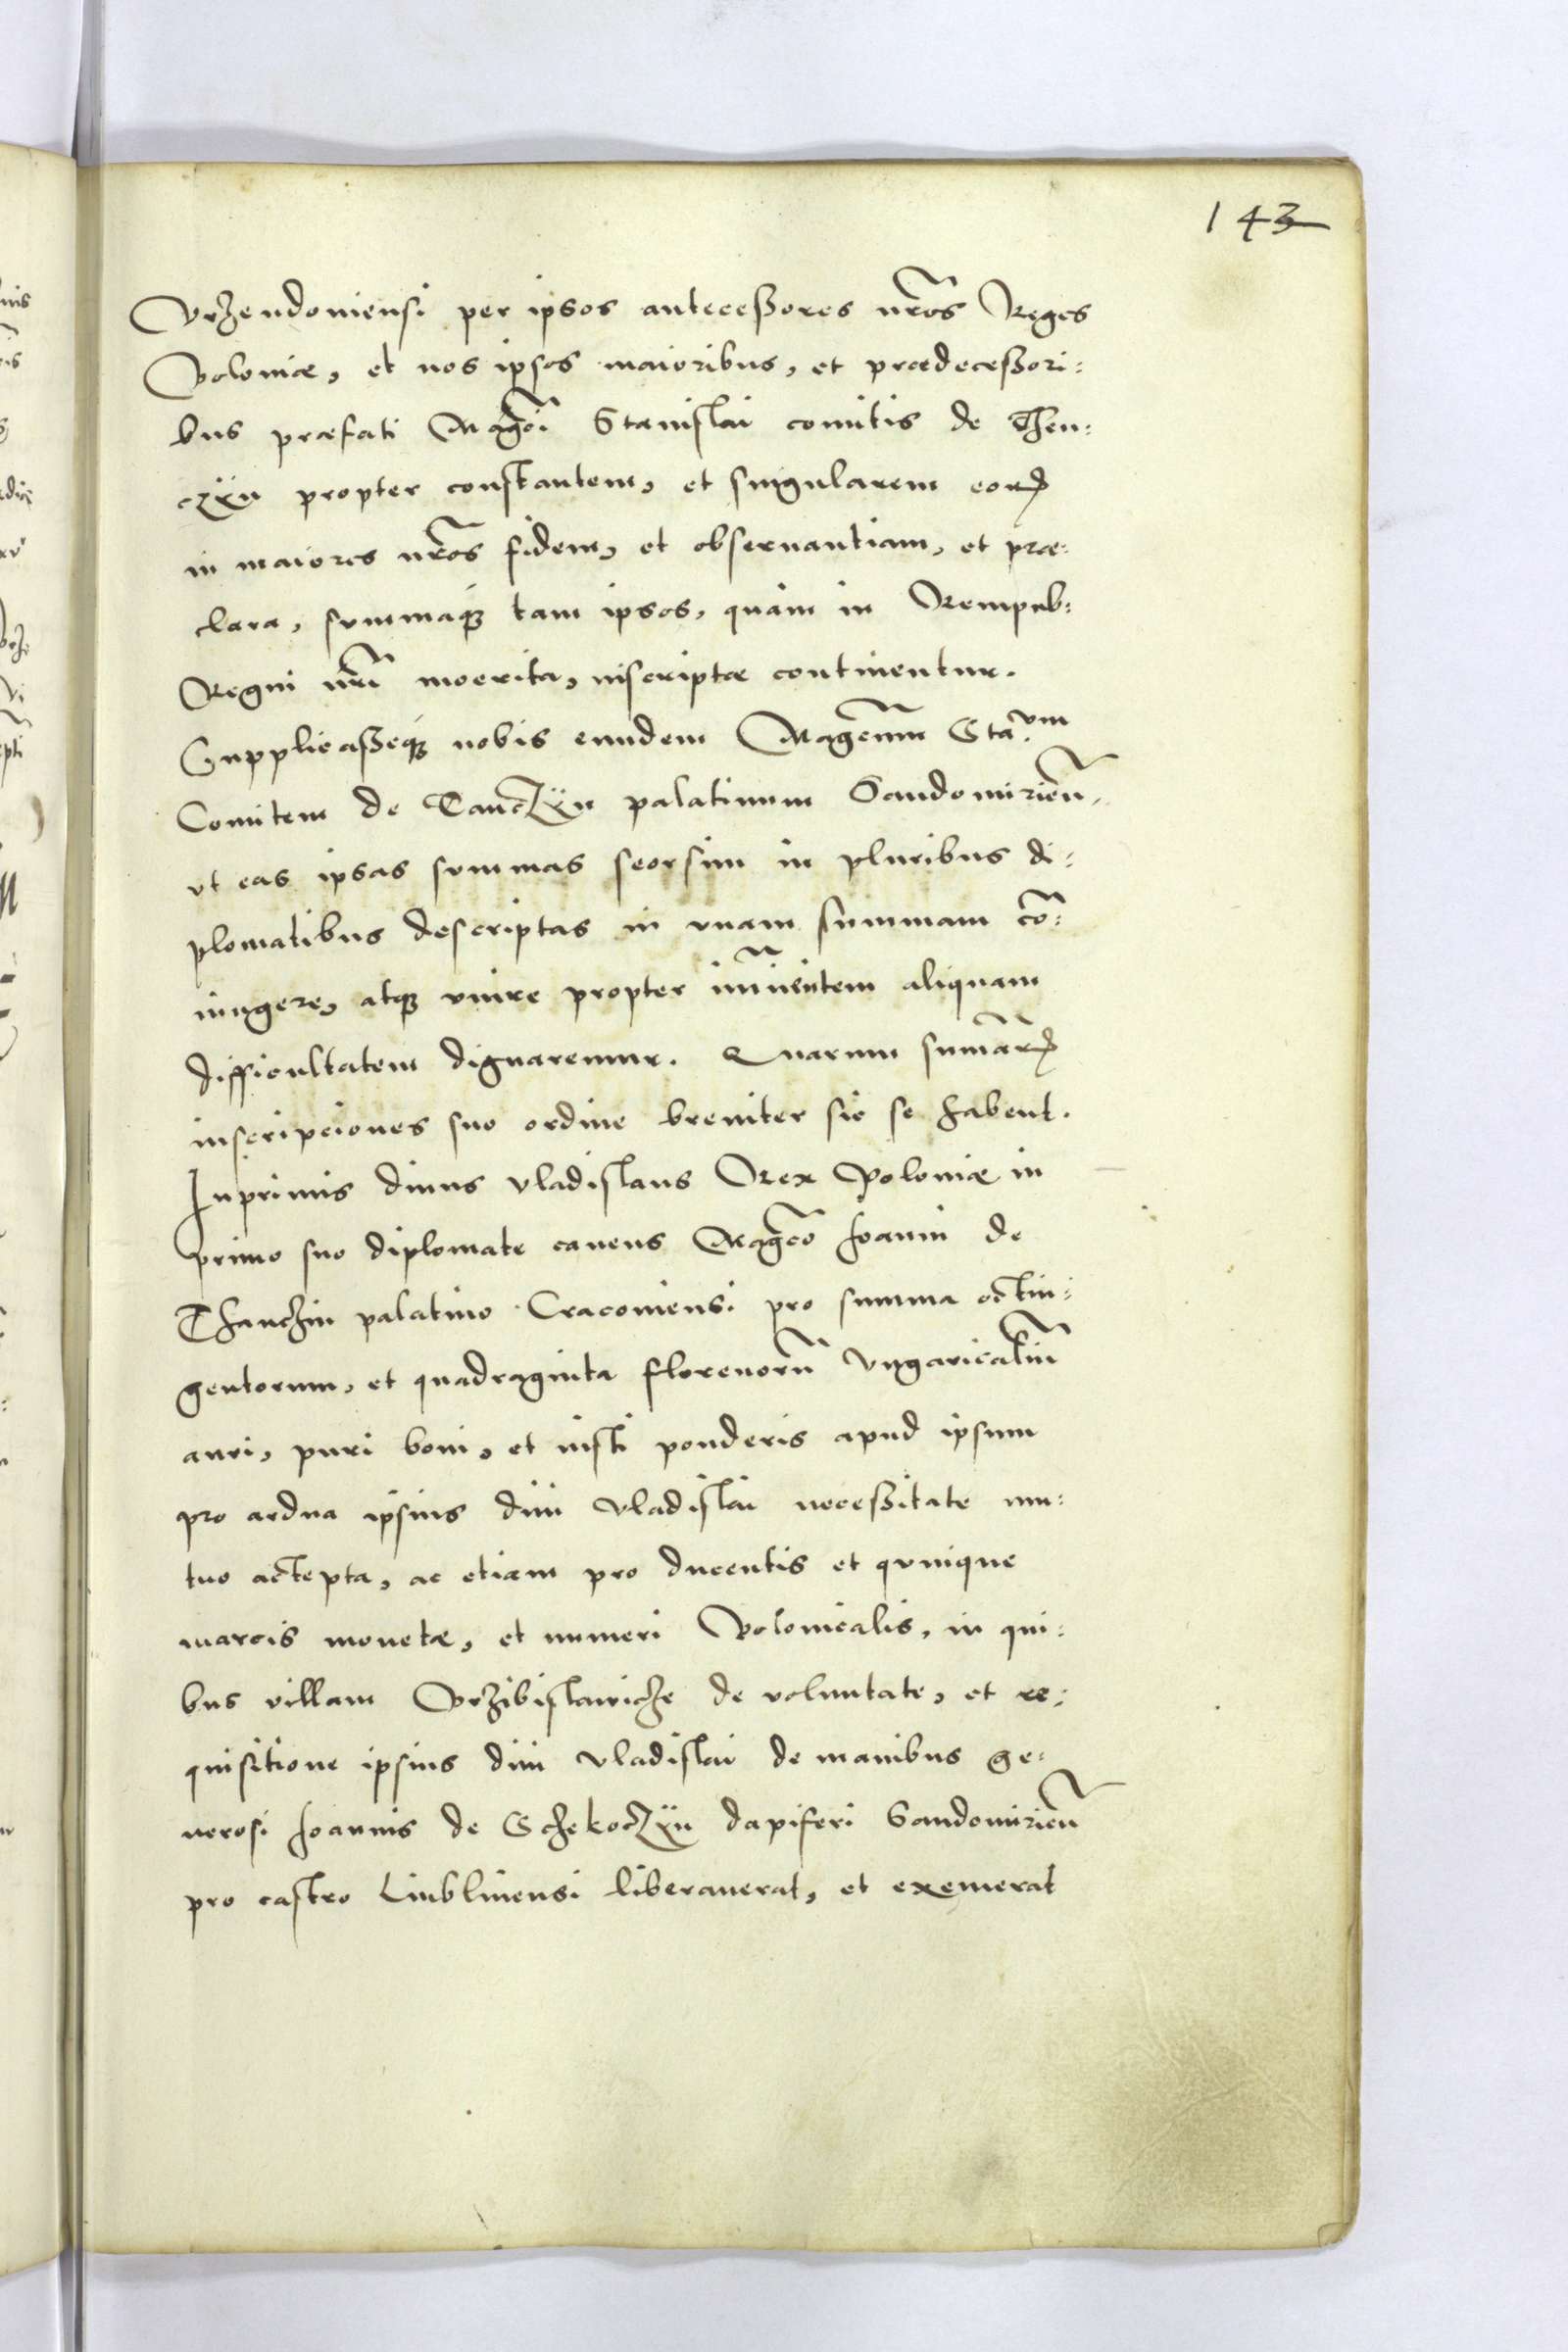 143
Vrzendoviensi per ipsos antecessores nr̃os Reges
Poloniæ, et nos ipsos maioribus, et prædecessori:
bus præfati Mag̃ci Stanislai comitis de Then:
czÿn propter constantem, et singularem eorꝝ
in maiores nr̃os fidem, et obseruantiam, et præ:
clara, summaqꝫ tam ipsos, quàm in Rempub:
Regni nr̃i moerita, inscriptæ continentur.
Supplicasseqꝫ nobis eundem Mag̃cum Sta.um
Comitem de Tanczÿn palatinum Sandomirieñ.
vt eas ipsas summas seorsim in pluribus di:
plomatibus descriptas in vnam summam cõ:
iungere, atqꝫ vnire propter im̃inentem aliquam
difficultatem dignaremur. Quarum sum̃arꝝ
inscripciones suo ordine breuiter sic se habent.
Inprimis diuus Vladislaus Rex Poloniæ in
primo suo diplomate cauens Mag̃co Joanni de
Thanczin palatino Cracouiensi pro summa octin:
gentorum, et quadraginta florenorũ Vngaricaliũ
auri, puri boni, et iusti ponderis apud ipsum
pro ardua ipsius diui Vladislai necessitate mu:
tuo actepta, ac etiam pro ducentis et quinque
marcis monetæ, et numeri Polonicalis, in qui:
bus villam Przibislawicze de voluntate, et re:
quisitione ipsius diui Vladislai de manibus ge:
nerosi Joannis de Sczekoczÿn dapiferi Sandomirieñ
pro castro Liublinensi liberauerat, et exemerat